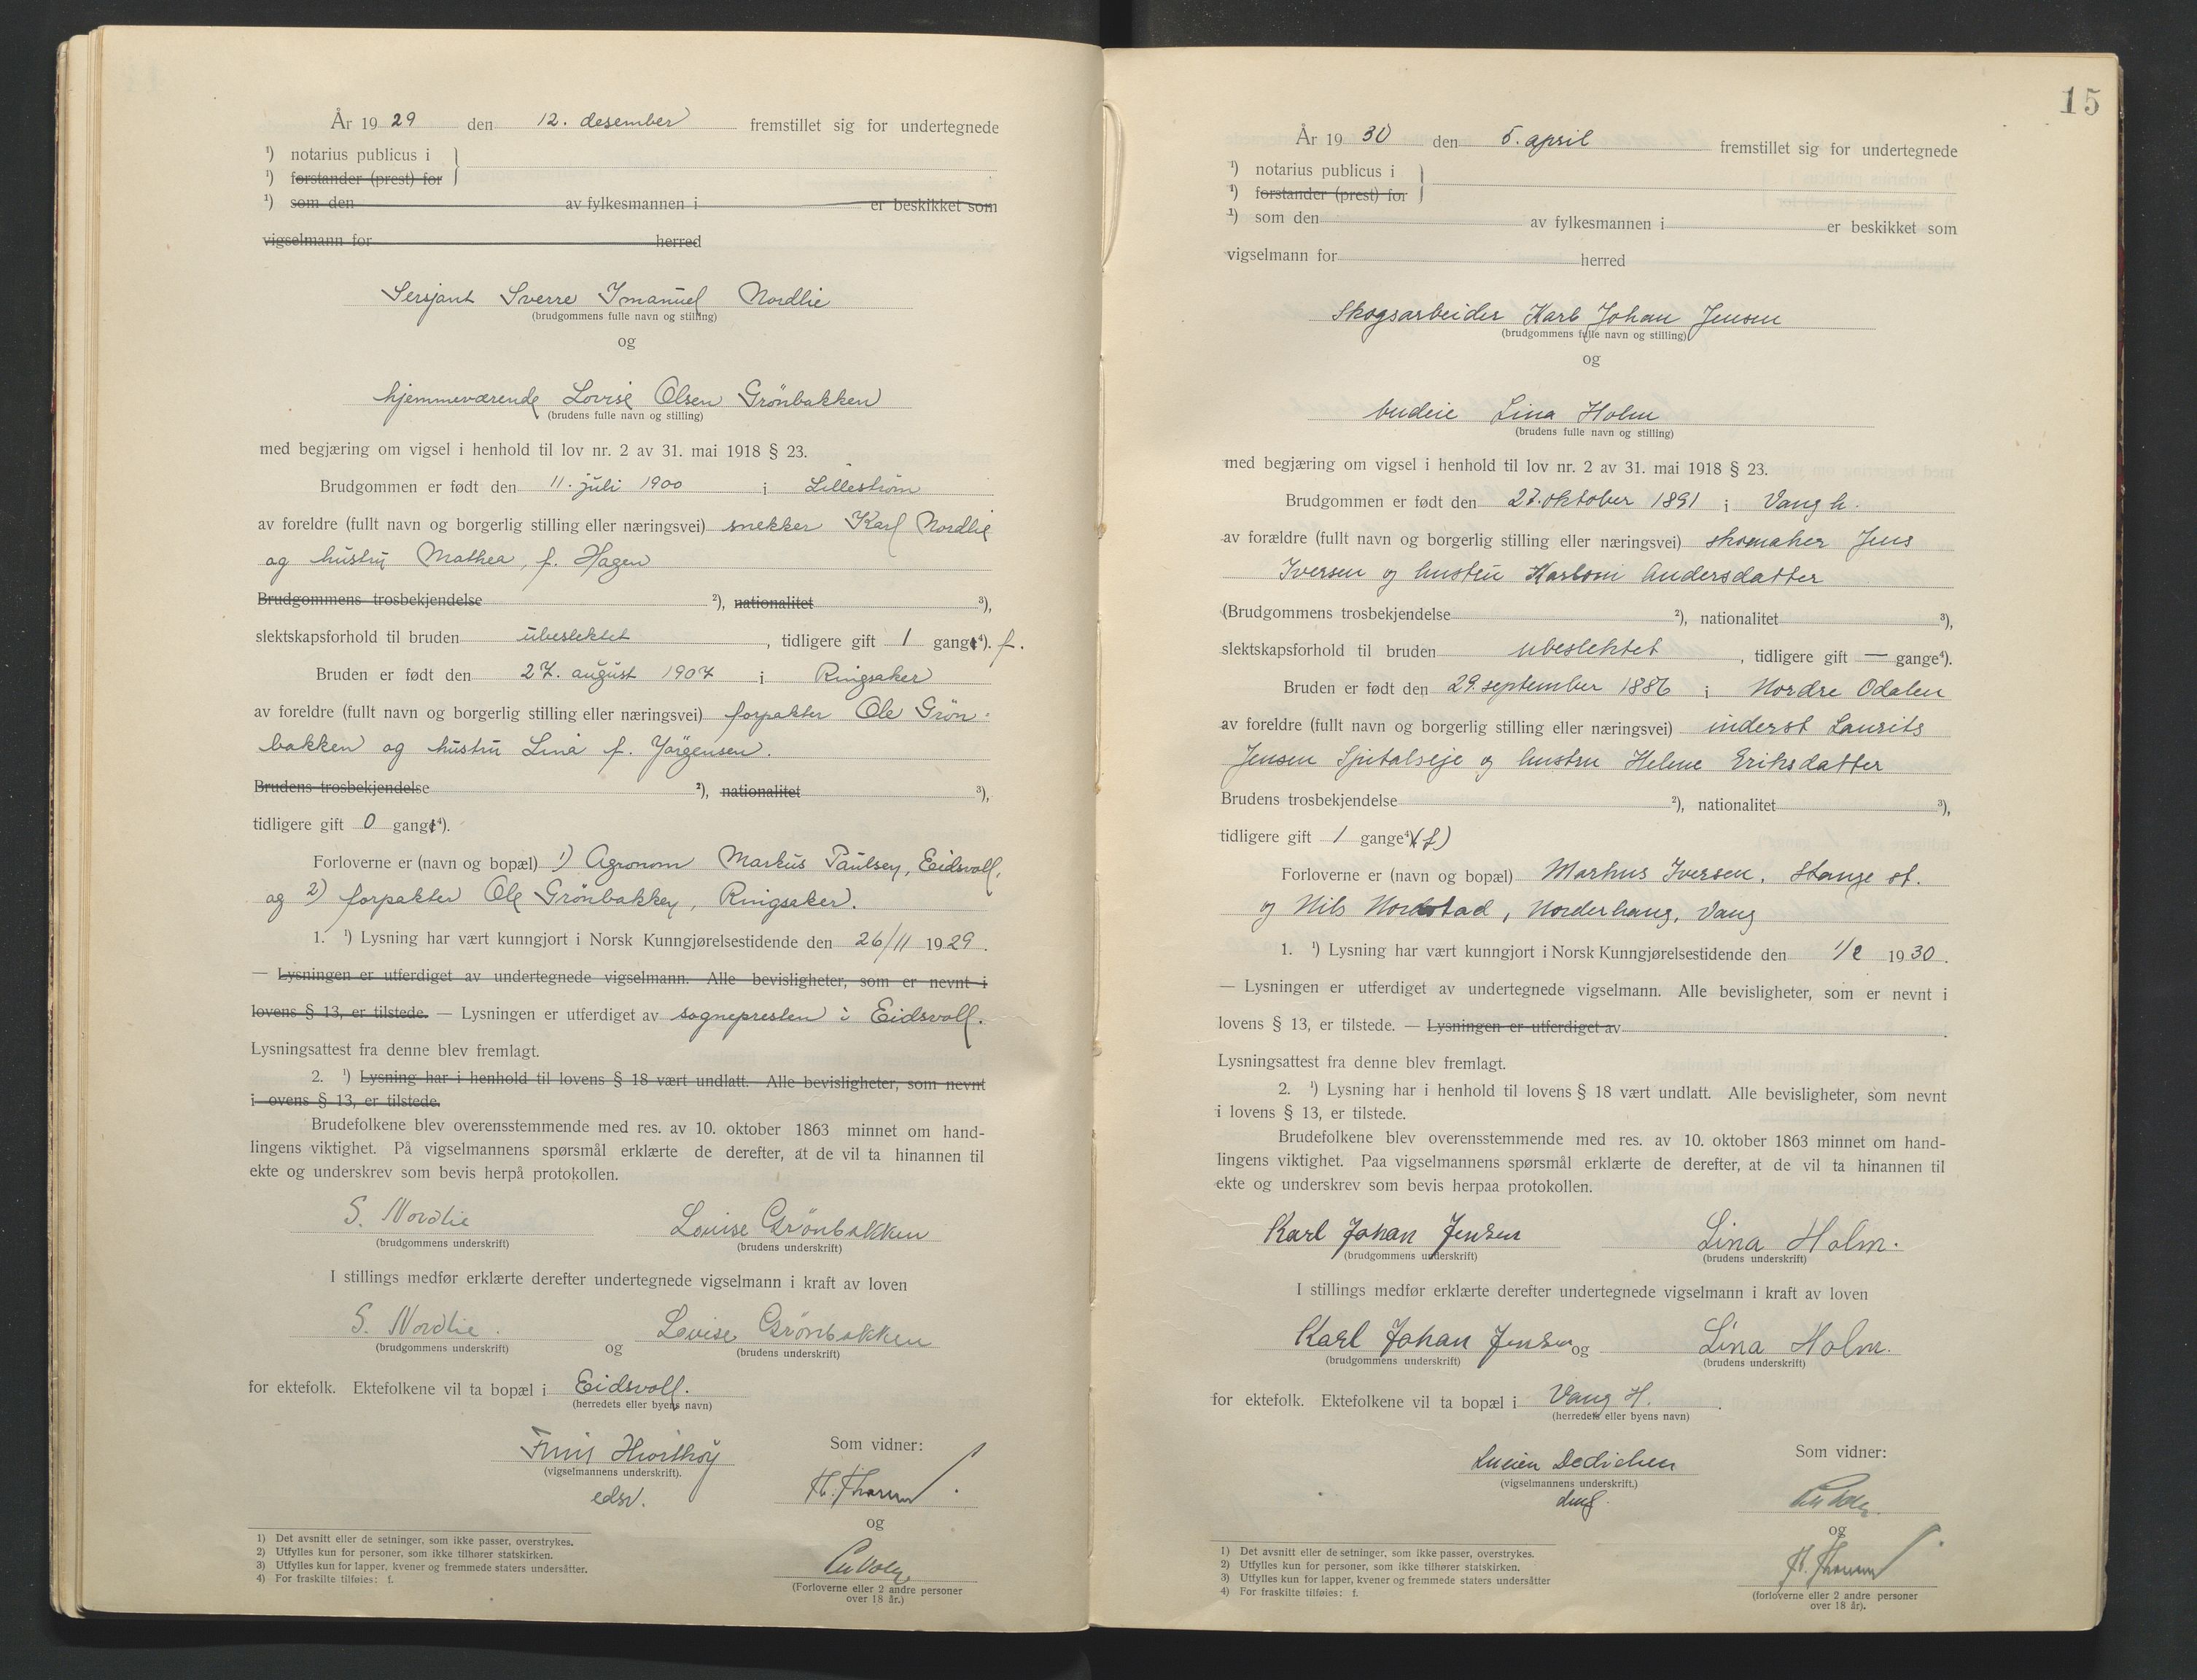 År 1929 den 12. desember fremstillet sig for undertegnede
¹) notarius publicus i
¹) forstander (prest) for
¹) som den av fylkesmannen i er beskikket som
vigselmann for herred
Sersjant Sverre Imanuel Nordlie
(brudgommens fulle navn og stilling)
og
hjemmeværende Lovise Olsen Grönbakken
(brudens fulle navn og stilling)
med begjæring om vigsel i henhold til lov nr. 2 av 31. mai 1918 § 23.
Brudgommen er født den 11. juli 1900 i Lilleström
av foreldre (fullt navn og borgerlig stilling eller næringsvei) snekker Karl Nordlie
og hustru Mathea, f. Hagen
Brudgommens trosbekjendelse ²), nationalitet ³),
slektskapsforhold til bruden ubeslektet, tidligere gift 1 gang⁴). f.
Bruden er født den 27. august 1907 i Ringsaker
av foreldre (fullt navn og borgerlig stilling eller næringsvei) forpakter Ole Grön-
bakken og hustru Lina f. Jörgensen.
Brudens trosbekjendelse ²), nationalitet ³),
tidligere gift 0 gang⁴).
Forloverne er (navn og bopæl) 1) Agronom Markus Paulsen, Eidsvoll,
og 2) forpakter Ole Grönbakken, Ringsaker.
1. ¹) Lysning har vært kunngjort i Norsk Kunngjørelsestidende den 26/11 1929.
— Lysningen er utferdiget av undertegnede vigselmann. Alle bevisligheter, som er nevnt i
lovens § 13, er tilstede. — Lysningen er utferdiget av sognepresten i Eidsvoll.
Lysningsattest fra denne blev fremlagt.
2. ¹) Lysning har i henhold til lovens § 18 vært undlatt. Alle bevisligheter, som nevnt
i ovens § 13, er tilstede.
Brudefolkene blev overensstemmende med res. av 10. oktober 1863 minnet om hand-
lingens viktighet. På vigselmannens spørsmål erklærte de derefter, at de vil ta hinannen til
ekte og underskrev som bevis herpå protokollen.
S. Nordlie Lovise Grönbakken
(brudgommens underskrift) (brudens underskrift)
I stillings medfør erklærte derefter undertegnede vigselmann i kraft av loven
S. Nordlie. og Lovise Grönbakken
(brudgommens underskrift) (brudens underskrift)
for ektefolk. Ektefolkene vil ta bopæl i Eidsvoll.
(herredets eller byens navn)
Som vidner:
(vigselmannens underskrift).
edsv.
og
(Forloverne eller 2 andre personer
over 18 år.)
1) Det avsnitt eller de setninger, som ikke passer, overstrykes.
2) Utfylles kun for personer, som ikke tilhører statskirken.
3) Utfylles kun for lapper, kvener og fremmede staters undersåtter.
4) For fraskilte tilføies: f.
15
År 1930 den 5. april fremstillet sig for undertegnede
¹) notarius publicus i
¹) forstander (prest) for
¹) som den av fylkesmannen i er beskikket som
vigselmann for herred
Skogsarbeider Karl Johan Jensen
(brudgommens fulle navn og stilling)
og
budeie Lina Holm
(brudens fulle navn og stilling)
med begjæring om vigsel i henhold til lov nr. 2 av 31. mai 1918 § 23.
Brudgommen er født den 27. oktober 1891 i Vang h.
av forældre (fullt navn og borgerlig stilling eller næringsvei) skomaker Jens
Iversen og hustru Andersdatter
(Brudgommens trosbekjendelse ²), nationalitet ³),
slektskapsforhold til bruden ubeslektet, tidligere gift — gange⁴).
Bruden er født den 29. september 1886 i Nordre Odalen
av foreldre (fullt navn og borgerlig stilling eller næringsvei) inderst Laurits
Jensen Spitalseje og hustru Helene Eriksdatter
Brudens trosbekjendelse ²), nationalitet ³),
tidligere gift 1 gange⁴) (f)
Forloverne er (navn og bopæl) Markus Iversen, Stange st.
og Nils Nordstad, Norderhaug, Vang
1. ¹) Lysning har vært kunngjort i Norsk Kunngjørelsestidende den 1/2 1930.
— Lysningen er utferdiget av undertegnede vigselmann. Alle bevisligheter, som er nevnt i
lovens § 13, er tilstede. — Lysningen er utferdiget av .
Lysningsattest fra denne blev fremlagt.
2. ¹) Lysning har i henhold til lovens § 18 vært undlatt. Alle bevisligheter, som nevnt
i lovens § 13, er tilstede.
Brudefolkene blev overensstemmende med res. av 10. oktober 1863 minnet om hand-
lingens viktighet. Paa vigselmannens spørsmål erklærte de derefter, at de vil ta hinannen til
ekte og underskrev som bevis herpaa protokollen.
Karl Johan Jensen Lina Holm.
(brudgommens underskrift) (brudens underskrift)
I stillings medfør erklærte derefter undertegnede vigselmann i kraft av loven
Karl Johan Jensen og Lina Holm.
(brudgommens underskrift) (brudens underskrift)
for ektefolk. Ektefolkene vil ta bopæl i Vang H.
(herredets eller byens navn)
Lucien Dedichen Som vidner:
(vigselmannens underskrift.)
og
(forloverne eller 2 andre personer
over 18 år).
1) Det avsnitt eller de setninger, som ikke passer, overstrykes.
2) Utfylles kun for personer, som ikke tilhører statskirken.
3) Utfylles kun for lapper, kvener og fremmede staters undersåtter
4) For fraskilte tilføies: f.